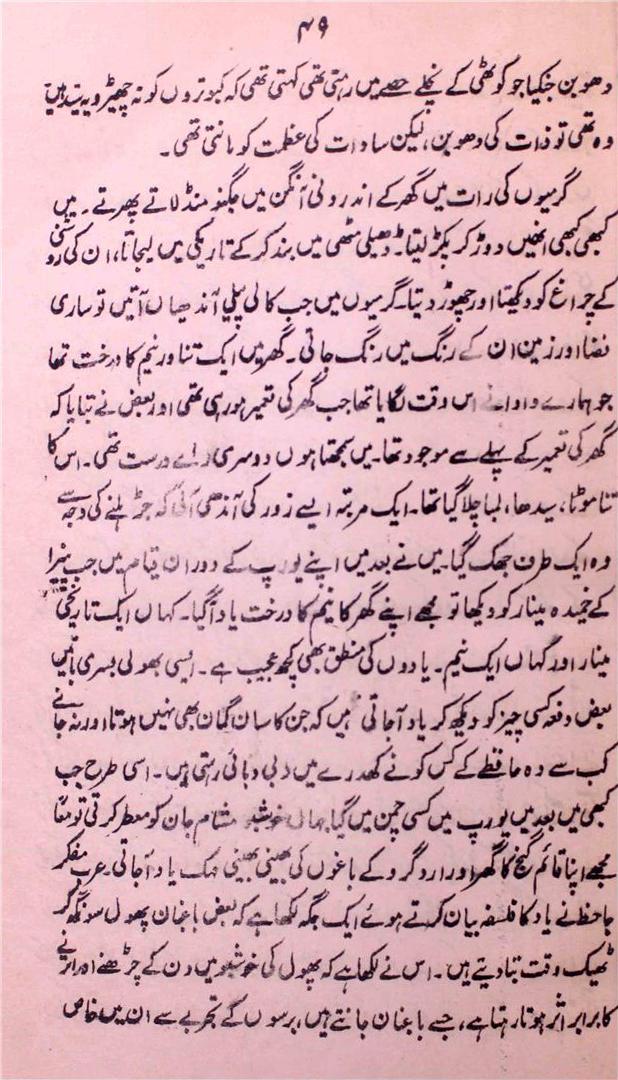 ۴۹
دھوبن جنکیا جو کوٹھی کے نچلے حصے میں رہتی تھی کہتی تھی کہ کبوتروں کو نہ چھیڑو یہ سید ہیں
وہ تھی تو ذات کی دھوبن، لیکن سادات کی عظمت کو مانتی تھی۔
گرمیوں کی رات میں گھر کے اندرونی آنگن میں جگنو منڈلاتے پھرتے۔ میں
کبھی کبھی انھیں دوڑ کر پکڑ لیتا۔ ڈھیلی مٹھی میں بند کر کے تاریکی میں لیجاتا، ان کی روشنی
کے چراغ کو دیکھتا اور چھوڑ دیتا۔ گرمیوں میں جب کالی پیلی آندھیاں آتیں تو ساری
فضا اور زمین ان کے رنگ میں رنگ جاتی۔ گھر میں ایک تناور نیم کا درخت تھا
جو ہمارے دادا نے اس وقت لگایا تھا جب گھر کی تعمیر ہو رہی تھی اور بعض نے بتایا کہ
گھر کی تعمیر کے پہلے سے موجود تھا۔ میں سمجھتا ہوں دوسری راے درست تھی۔ اس کا
تنا موٹا، سیدھا، لمبا چلا گیا تھا۔ ایک مرتبہ ایسے زور کی آندھی آئی کہ جڑ ہلنے کی وجہ سے
وہ ایک طرف جھک گیا۔ میں نے بعد میں اپنے یورپ کے دوران قیام میں جب پیزا
کے خمیدہ مینار کو دیکھا تو مجھے اپنے گھر کا نیم کا درخت یاد آگیا۔ کہاں ایک تاریخی
مینار اور کہاں ایک نیم۔ یادوں کی منطق بھی کچھ عجیب ہے۔ ایسی بھولی بسری باتیں
بعض دفعہ کسی چیز کو دیکھ کر یاد آجاتی ہیں کہ جن کا سان گمان بھی نہیں ہوتا اور نہ جانے
کب سے وہ حافظے کے کس کونے کھدرے میں دبی دبائی رہتی ہیں۔ اسی طرح جب
کبھی میں بعد میں یورپ میں کسی چمن میں گیا جہاں خوشبو مشام جان کو معطر کرتی تو معًا
مجھے اپنا قائم گنج کا گھر اور ارد گرد کے باغوں کی بھینی بھینی مہک یاد آجاتی۔ عرب مفکر
جاحظ نے یاد کا فلسفہ بیان کرتے ہوئے ایک جگہ لکھا ہے کہ بعض باغبان پھول سونگھ کر
ٹھیک وقت بتا دیتے ہیں۔ اس نے لکھا ہے کہ پھول کی خوشبو میں دن کے چڑھنے اور اترنے
کا برابر اثر ہوتا رہتا ہے، جسے باغبان جانتے ہیں، برسوں کے تجربے سے ان میں خاص